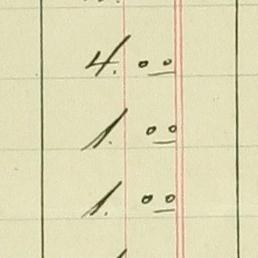 4. 00
1. 00
1. 00